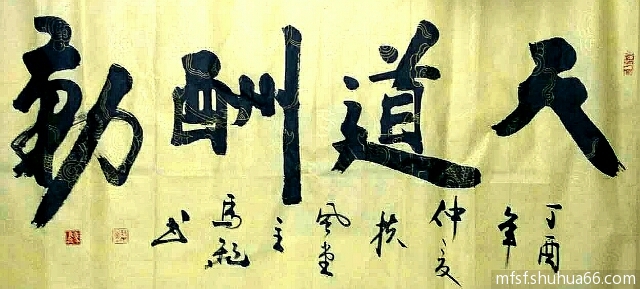 天道酬勤
丁酉
年
仲夏
扶
風堂
主
馬
书
mfsf.shuhua66.com